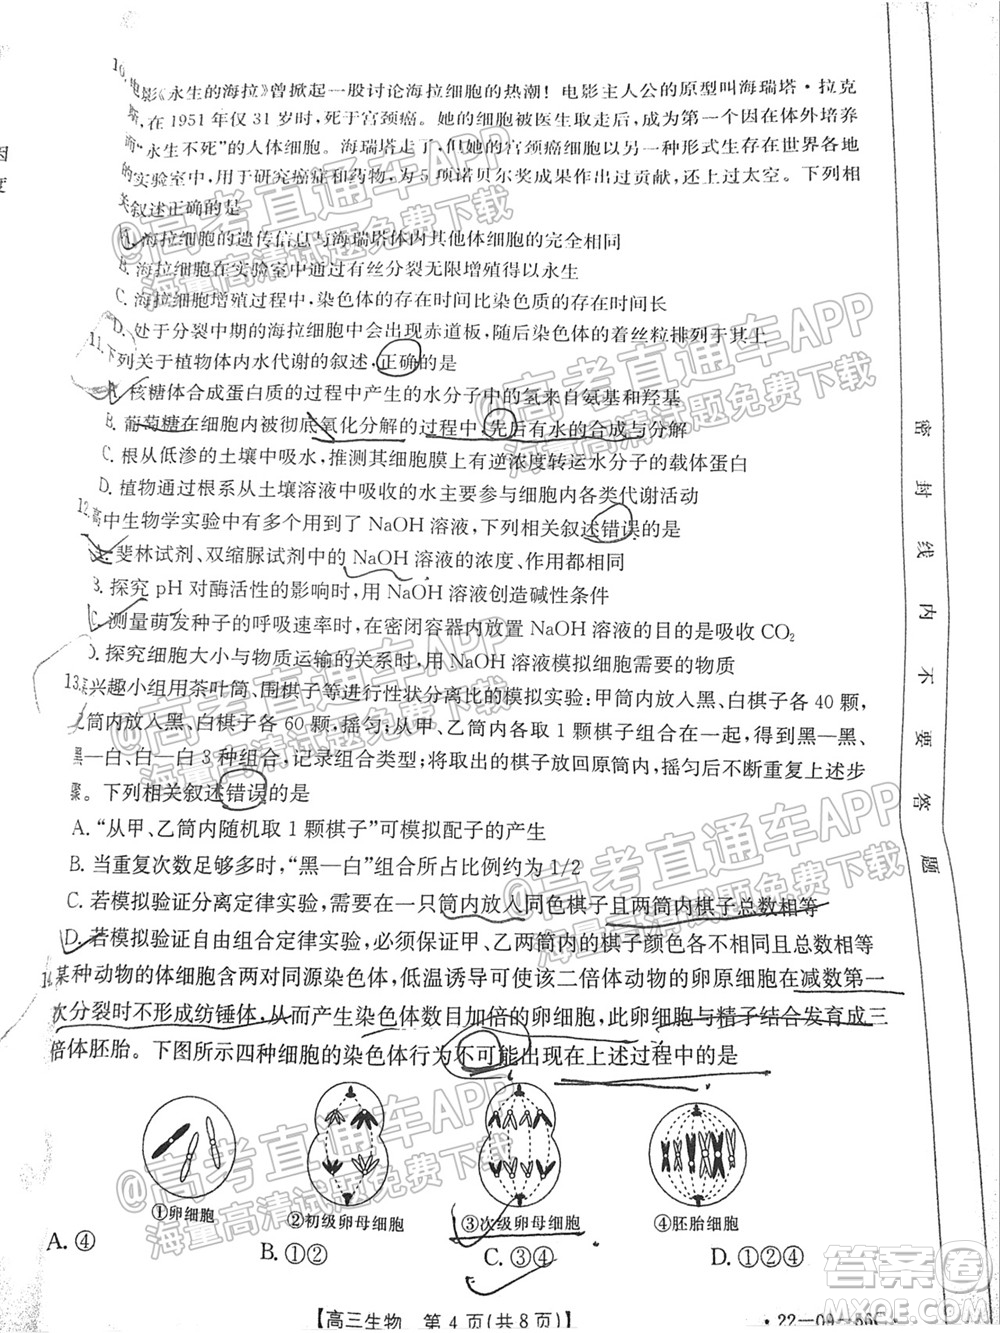 10.电影《永生的海拉》曾掀起一股讨论海拉细胞的热潮！电影主人公的原型叫海瑞塔·拉克
斯，在 1951 年仅 31 岁时，死于宫颈癌。她的细胞被医生取走后，成为第一个在体外培养
的“永生不死”的人体细胞。海瑞塔走了，但她的宫颈癌细胞以另一种形式生存在世界各地
的实验室中，用于研究癌症和药物，为 5 项诺贝尔奖成果作出过贡献，还上过太空。下列相
关叙述正确的是
A.海拉细胞的遗传信息与海瑞塔体内其他体细胞的完全相同
B.海拉细胞在实验室中通过有丝分裂无限增殖得以永生
C.海拉细胞增殖过程中，染色体的存在时间比染色质的存在时间长
D.处于分裂中期的海拉细胞中会出现赤道板，随后染色体的着丝粒排列于其上
11.下列关于植物体内水代谢的叙述，正确的是
A.核糖体合成蛋白质的过程中产生的水分子中的氢来自氨基和羟基
B.葡萄糖在细胞内被彻底氧化分解的过程中，先后有水的合成与分解
C.根从低渗的土壤中吸水，推测其细胞膜上有逆浓度转运水分子的载体蛋白
D.植物通过根系从土壤溶液中吸收的水主要参与细胞内各类代谢活动
12.高中生物学实验中有多个用到了 NaOH 溶液，下列相关叙述错误的是
A.斐林试剂、双缩脲试剂中的 NaOH 溶液的浓度、作用都相同
B.探究 pH 对酶活性的影响时，用 NaOH 溶液创造碱性条件
C.测量萌发种子的呼吸速率时，在密闭容器内放置 NaOH 溶液的目的是吸收 CO₂
D.探究细胞大小与物质运输的关系时，用 NaOH 溶液模拟细胞需要的物质
13.某兴趣小组用茶叶筒、围棋子等进行性状分离比的模拟实验：甲筒内放入黑、白棋子各 40 颗，
乙筒内放入黑、白棋子各 60 颗，摇匀；从甲、乙筒内各取 1 颗棋子组合在一起，得到黑—黑、
黑—白、白—白 3 种组合，记录组合类型；将取出的棋子放回原筒内，摇匀后不断重复上述步
骤。下列相关叙述错误的是
A.“从甲、乙筒内随机取 1 颗棋子”可模拟配子的产生
B.当重复次数足够多时，“黑—白”组合所占比例约为 1/2
C.若模拟验证分离定律实验，需要在一只筒内放入同色棋子且两筒内棋子总数相等
D.若模拟验证自由组合定律实验，必须保证甲、乙两筒内的棋子颜色各不相同且总数相等
14.某种动物的体细胞含两对同源染色体，低温诱导可使该二倍体动物的卵原细胞在减数第一
次分裂时不形成纺锤体，从而产生染色体数目加倍的卵细胞，此卵细胞与精子结合发育成三
倍体胚胎。下图所示四种细胞的染色体行为不可能出现在上述过程中的是
①卵细胞 ②初级卵母细胞 ③次级卵母细胞 ④胚胎细胞
A.④ B.①② C.③④ D.①②④
【高三生物 第 4 页(共 8 页)】 ·22—09—56C·
密封线内不要答题
@高考直通车APP
海量高清试题免费下载
@高考直通车APP
海量高清试题免费下载
@高考直通车APP
海量高清试题免费下载
@高考直通车APP
海量高清试题免费下载
@高考直通车APP
海量高清试题免费下载
答案圈
MXQE.COM